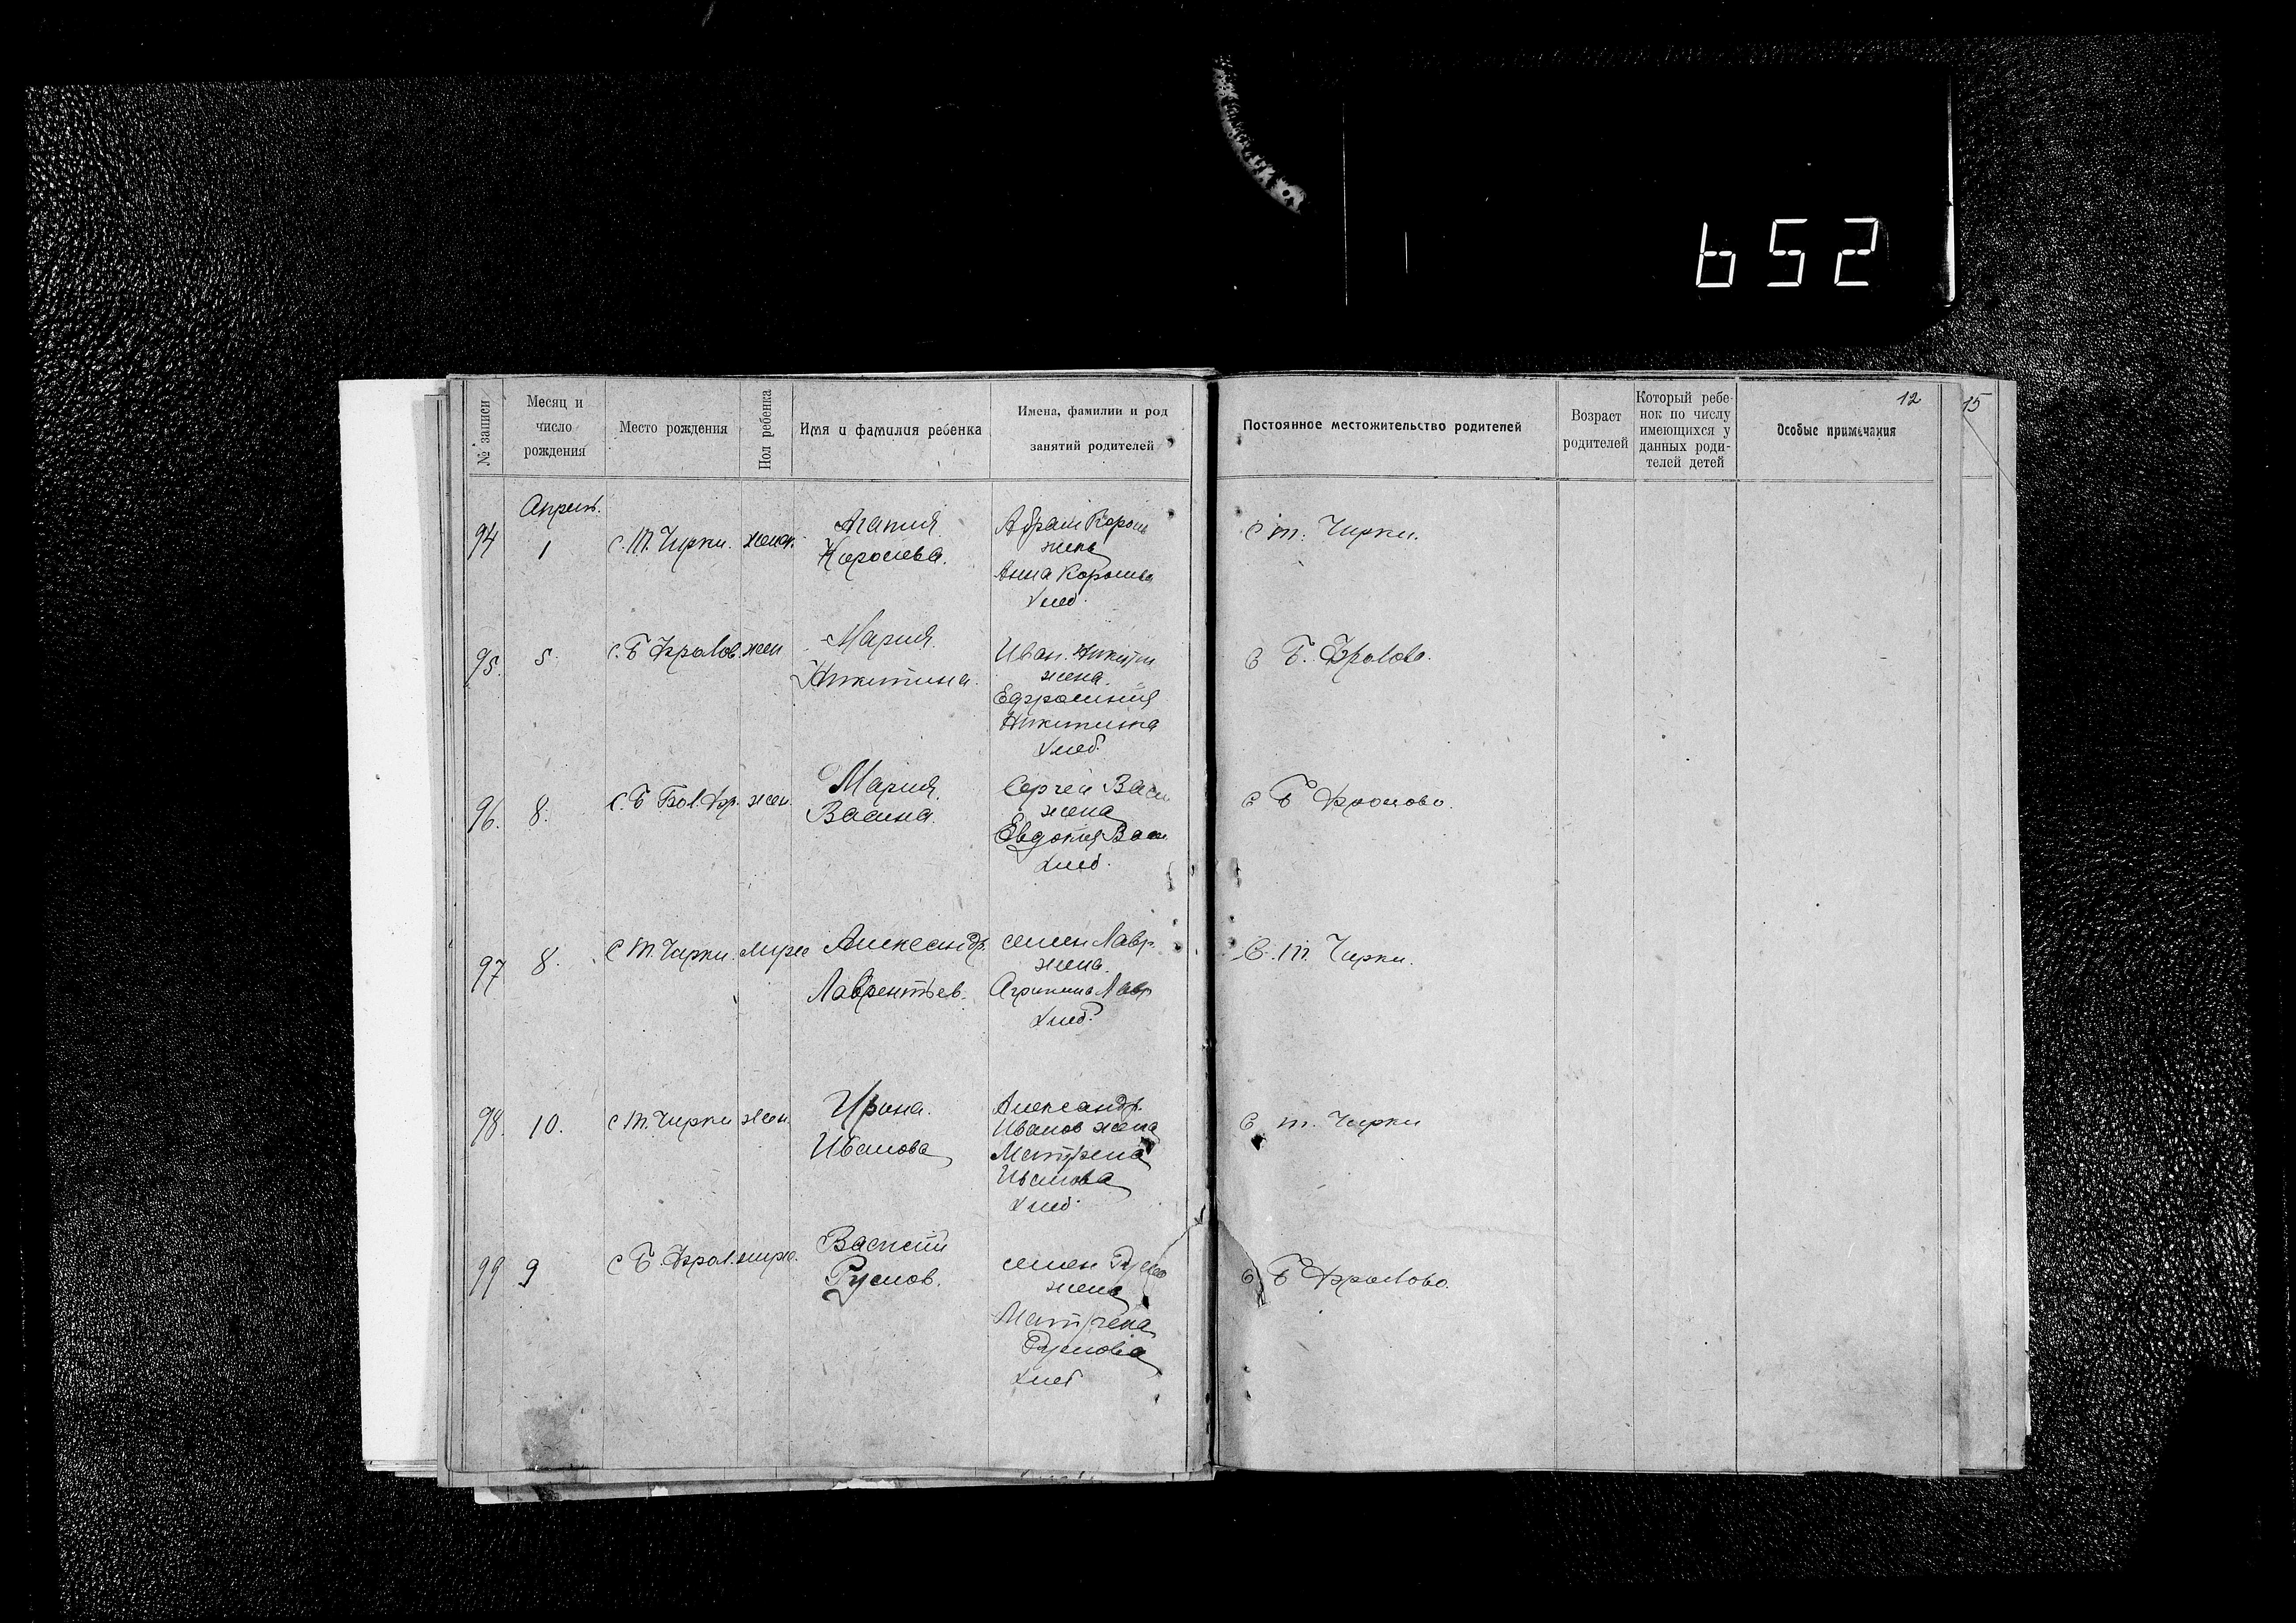 652
12
15
№ записи
Месяц и
число
рождения
Место рождения
Пол ребенка
Имя и фамилия ребенка
Имена, фамилии и род
занятий родителей
Постоянное местожительство родителей
Возраст
родителей
Который ребе-
нок по числу
имеющихся у
данных роди-
телей детей
Особые примечания
Апрель.
94 1 с. Т. Чирки. женск.
Агапия
Королева.
Абрам Корол
жена
Анна Королева
хлеб.
с Т. Чирки.
95. 5. с. Б Фролов. жен
Мария
Никитина.
Иван Никитин
жена.
Ефросиния
Никитина
хлеб.
с Б. Фролово.
96. 8. с. Б Бол. Фр. жен.
Мария.
Васина.
Сергей Васи
жена
Евдокия Васи
хлеб.
с Б Фролово.
97 8. с Т. Чирки. муж
Александр.
Лаврентьев.
семен Лавр.
жена.
Агрипина Лавр
хлеб.
С. Т. Чирки.
98. 10. с Т. Чирки жен.
Ирина.
Иванова
Александр.
Иванов жена
Матрена
Иванова
хлеб.
с Т. Чирки
99 9 с Б. Фрол. муж.
Василий
Руслов.
семен
жена
Матрена
Руслова
хлеб
с Б Фролово.